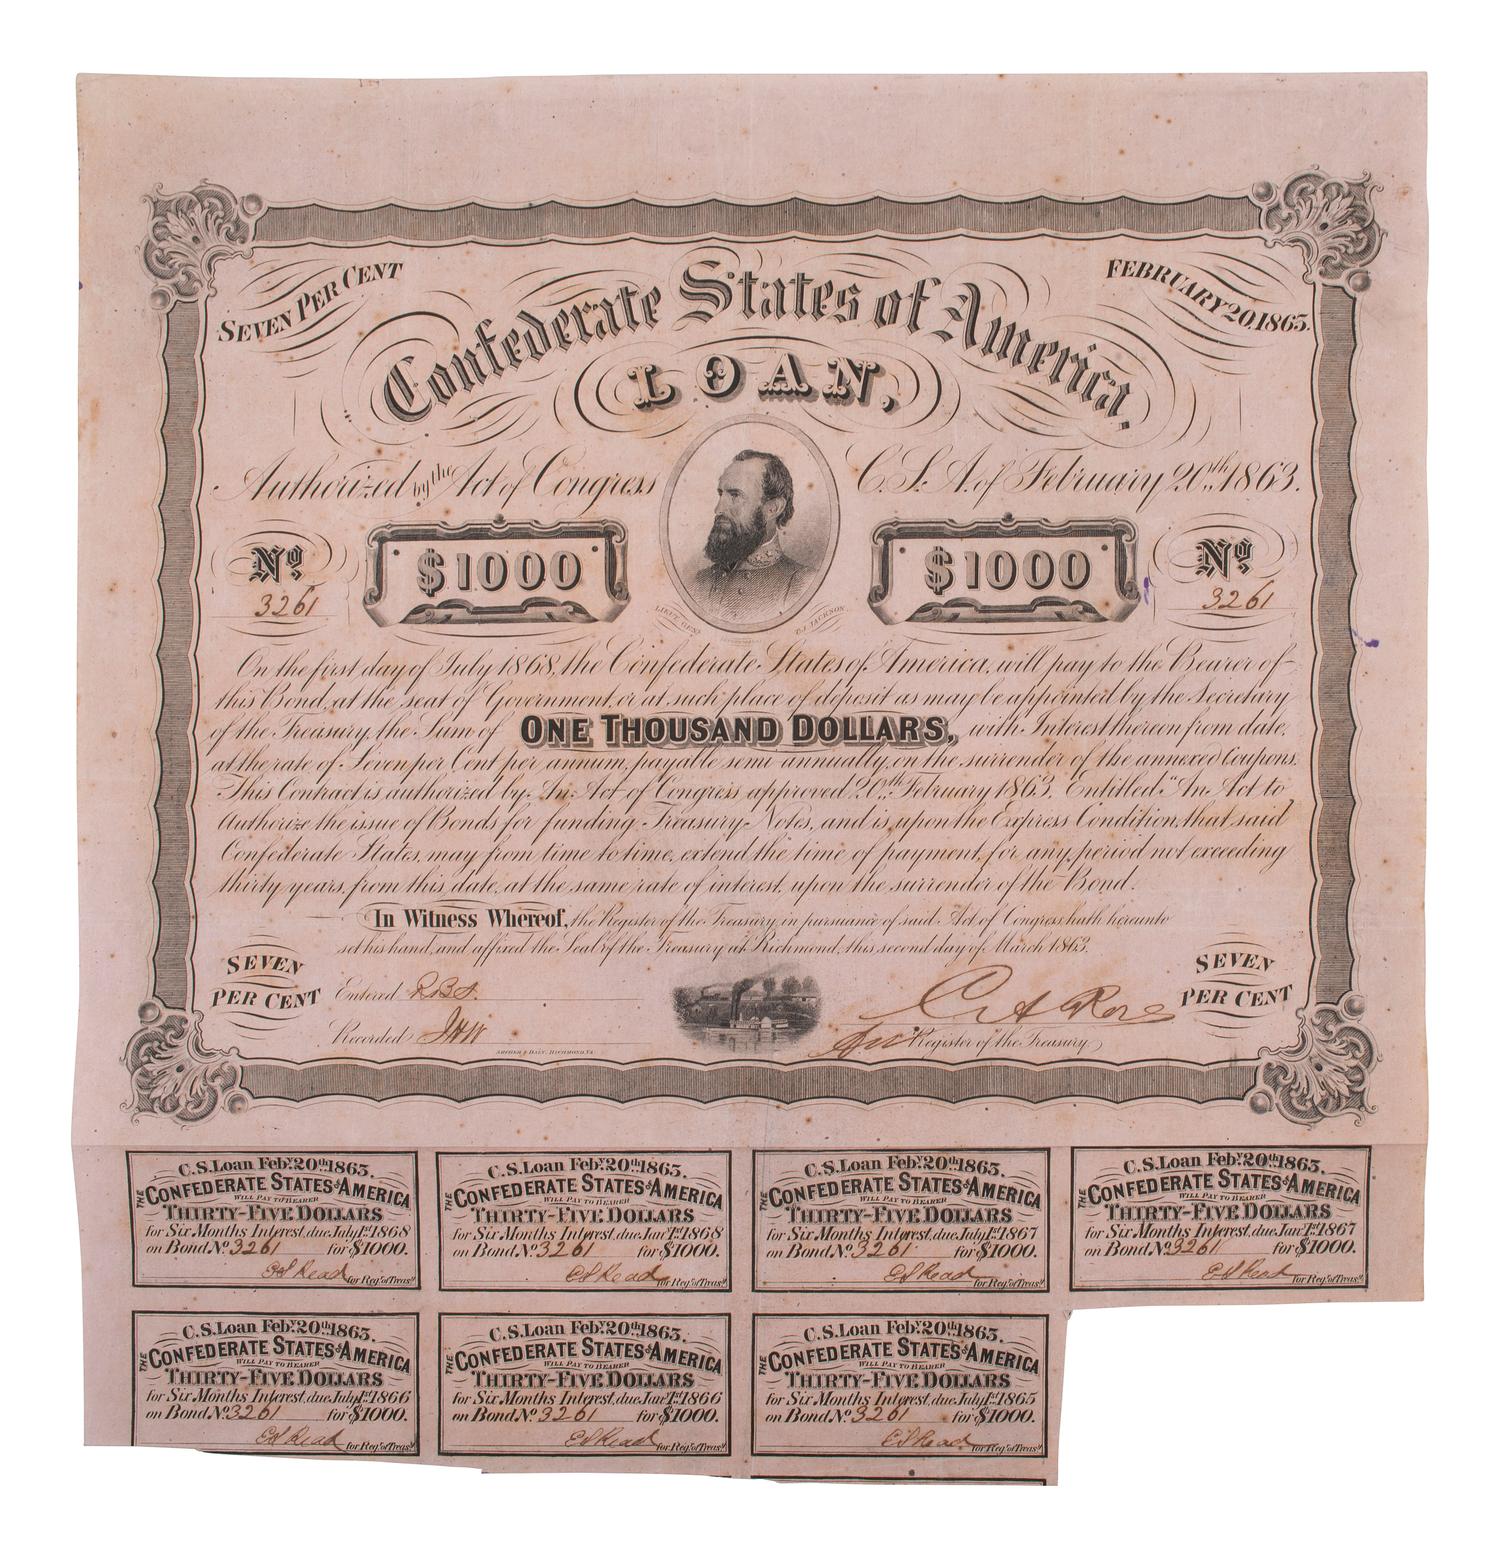 SEVEN PER CENT
FEBRUARY 20, 1863.
Confederate States of America
LOAN,
Authorized by the Act of Congress C.S.A. of February 20th 1863.
No $1000 $1000 No
3261 3261
LIEUT. GENL T.J. JACKSON
On the first day of July 1868, the Confederate States of America, will pay to the Bearer of
this Bond, at the seat of Government, or at such place of deposit as may be appointed by the Secretary
of the Treasury, the Sum of ONE THOUSAND DOLLARS, with Interest thereon from date,
at the rate of Seven per Cent per annum, payable semi annually, on the surrender of the annexed Coupons.
This Contract is authorized by An Act of Congress approved 20th February 1863. Entitled "An Act to
Authorize the issue of Bonds for funding Treasury Notes, and is upon the Express Condition, that said
Confederate States, may from time to time, extend the time of payment, for any period not exceeding
thirty years, from this date, at the same rate of interest, upon the surrender of the Bond.
In Witness Whereof, the Register of the Treasury, in pursuance of said Act of Congress hath hereunto
set his hand, and affixed the Seal of the Treasury at Richmond, this second day of March 1863.
SEVEN PER CENT
Entered
Recorded
ARCHER & DALY, RICHMOND, VA.
C A Rose
Register of the Treasury
SEVEN PER CENT
C.S. Loan Feby. 20th 1863.
THE CONFEDERATE STATES OF AMERICA
WILL PAY TO BEARER
THIRTY-FIVE DOLLARS
for Six Months Interest, due July 1st 1868
on Bond No. 3261 for $1000.
E S Read for Reg. of Treasy
C.S. Loan Feby. 20th 1863.
THE CONFEDERATE STATES OF AMERICA
WILL PAY TO BEARER
THIRTY-FIVE DOLLARS
for Six Months Interest, due Jany 1st 1868
on Bond No. 3261 for $1000.
E S Read for Reg. of Treasy
C.S. Loan Feby. 20th 1863.
THE CONFEDERATE STATES OF AMERICA
WILL PAY TO BEARER
THIRTY-FIVE DOLLARS
for Six Months Interest, due July 1st 1867
on Bond No. 3261 for $1000.
E S Read for Reg. of Treasy
C.S. Loan Feby. 20th 1863.
THE CONFEDERATE STATES OF AMERICA
WILL PAY TO BEARER
THIRTY-FIVE DOLLARS
for Six Months Interest, due Jany 1st 1867
on Bond No. 3261 for $1000.
E S Read for Reg. of Treasy
C.S. Loan Feby. 20th 1863.
THE CONFEDERATE STATES OF AMERICA
WILL PAY TO BEARER
THIRTY-FIVE DOLLARS
for Six Months Interest, due July 1st 1866
on Bond No. 3261 for $1000.
E S Read for Reg. of Treasy
C.S. Loan Feby. 20th 1863.
THE CONFEDERATE STATES OF AMERICA
WILL PAY TO BEARER
THIRTY-FIVE DOLLARS
for Six Months Interest, due Jany 1st 1866
on Bond No. 3261 for $1000.
E S Read for Reg. of Treasy
C.S. Loan Feby. 20th 1863.
THE CONFEDERATE STATES OF AMERICA
WILL PAY TO BEARER
THIRTY-FIVE DOLLARS
for Six Months Interest, due July 1st 1865
on Bond No. 3261 for $1000.
E S Read for Reg. of Treasy